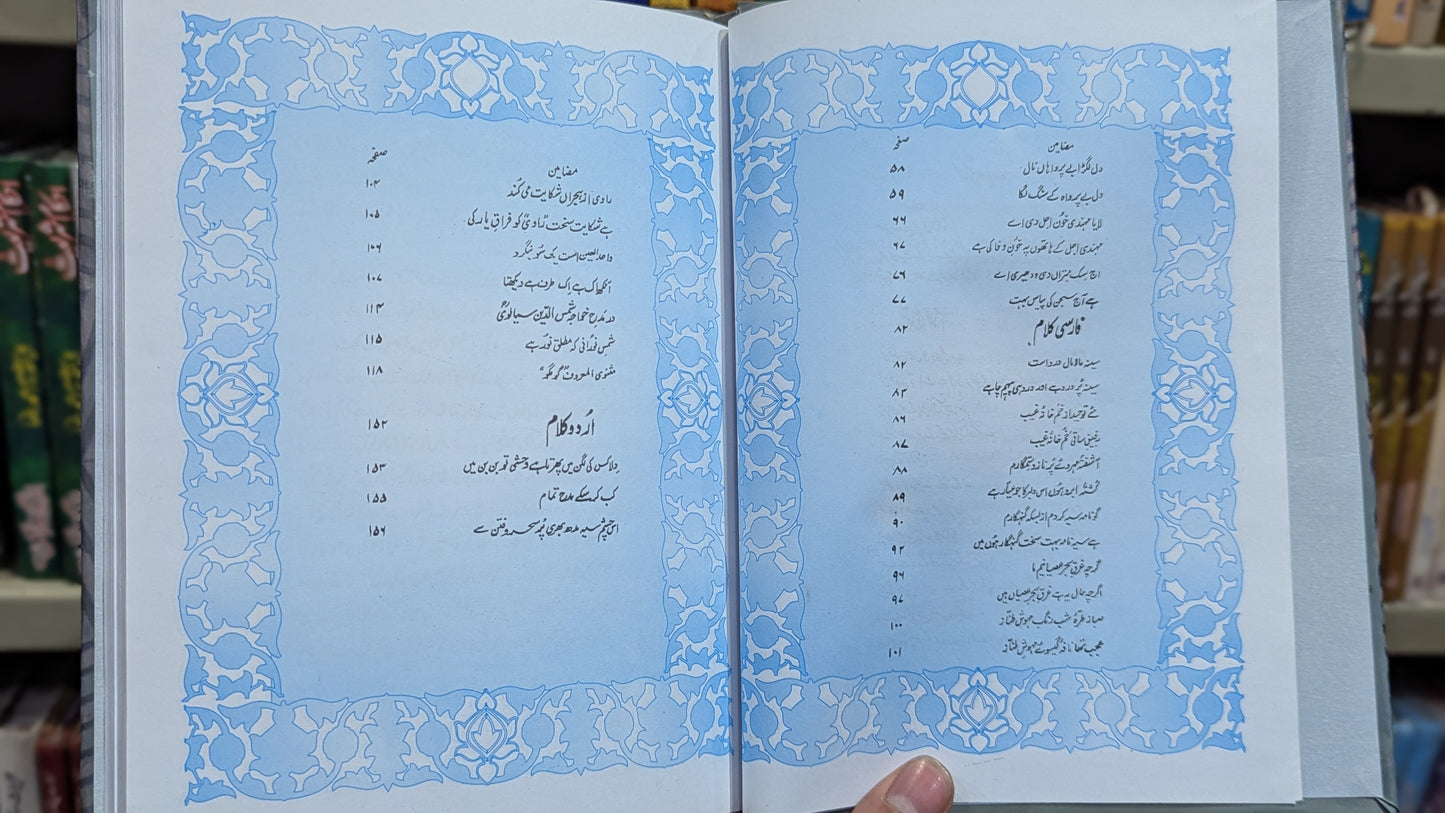 مضامین صفحہ
دل لگڑا بے پرواہاں نال ۵۸
دل بے پرواہ کے سنگ لگا ۵۹
لایا مہندی خون اجل دی اے ۶۶
مہندی اجل کے ہاتھوں پہ خون وفا کی ہے ۶۷
اج سک متراں دی ودھیری اے ۷۶
ہے آج سجن کی پیاس بہت ۷۷
فارسی کلام ۸۲
سینہ مالامال درد است ۸۲
سینہ پُر درد ہے اور درد ہی پیہم چاہے ۸۳
مئے توحید از خم خانۂ غیب ۸۶
ساقی خم خانۂ غیب ۸۷
آشفتۂ مہ روئے پُر ناز و ستمگارم ۸۸
کشتہ ابرو ہوں اس دلبر کا جو عیار ہے ۸۹
گو نامہ سیہ کردم از بسکہ گنہگارم ۹۰
ہے سیہ نامہ بہت سخت گنہگار ہوں میں ۹۲
گرچہ غرق بحر عصیانیم ما ۹۶
اگرچہ حال یہ ہے غرق بحر عصیاں ہیں ۹۷
صبا ز طرۂ شب رنگ مہوش طناز ۱۰۰
عجب تھا نافۂ گیسوئے مہوش طناز ۱۰۱
مضامین صفحہ
رادی از ہجراں شکایت می کُند ۱۰۴
ہے شکایت سخت "رادی" کو فراق یار کی ۱۰۵
واحد العین است یک سو بنگرد ۱۰۶
آنکھ اک ہے اک طرف ہے دیکھتا ۱۰۷
در مدح خواجہ شمس الدین سیالویؒ ۱۱۴
شمس نورانی کہ مطلق نور ہے ۱۱۵
مثنوی المعروف "گو مگو" ۱۱۸
اُردو کلام ۱۵۲
دلا کس کی لگن میں پھرتا ہے وحشی تو بن بن میں ۱۵۳
کب کر سکے مدح تمام ۱۵۵
اس چشم سیہ مدھ بھری پُر سحر و فتن سے ۱۵۶